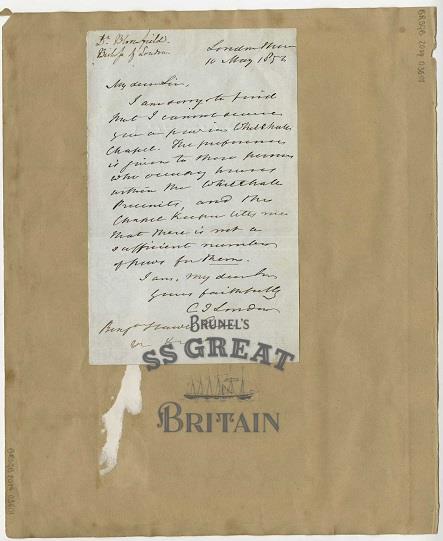 Dr. Blomfield
Bishop of London
London House
10 May 1852
My dear Sir,
I am sorry to find
that I cannot secure
you a pew in Whitehall
Chapel. The preference
is given to those persons
who occupy houses
within the Whitehall
Precincts, and the
Chapel Keeper tells me
that there is not a
sufficient number
of pews for them.
I am, My dear Sir
Yours faithfully
C J London
Benjn Hawes
BRUNEL'S
SS GREAT
BRITAIN